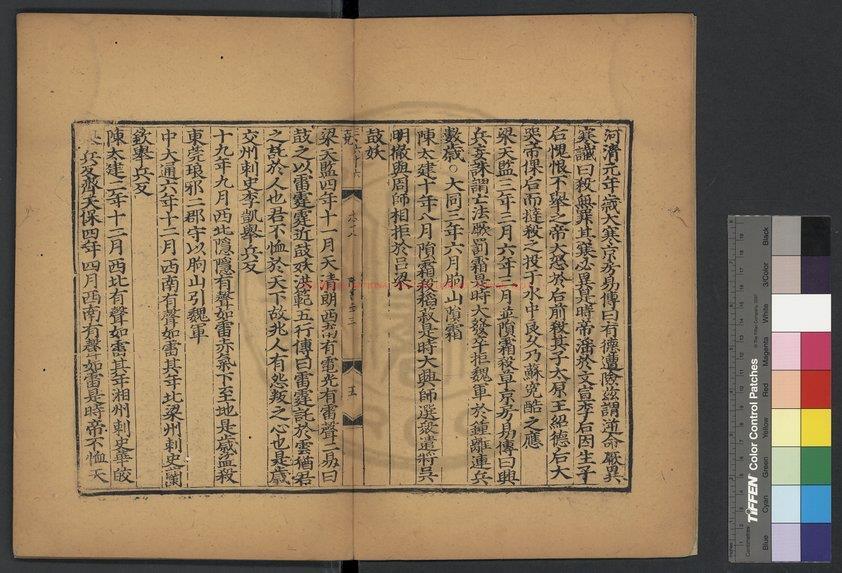 河清元年歲大寒京房易傳曰有德遭險茲謂逆命厥異
寒讖曰殺無罪其寒必異是時帝淫於文宣李后因生子
后愧恨不舉之帝大怒於后前殺其子太原王紹德后大
哭帝倮后而撻殺之投于水中良久乃蘇冤酷之應
梁天監三年三月六年三月並隕霜殺草京房易傳曰興
兵妄誅謂亡法厥罰霜是時大發卒拒魏軍於鍾離連兵
數歲○大同三年六月朐山隕霜
陳太建十年八月隕霜殺稻菽是時大興師選衆遣將吳
明徹與周師相拒於呂梁
鼓妖
梁天監四年十一月天清朗西南有電光有雷聲二易曰
鼓之以雷霆霆近鼓妖洪範五行傳曰雷霆託於雲猶君
之託於人也君不恤於天下故兆人有怨叛之心也是歲
交州刺史李凱舉兵反
十九年九月西北隱隱有聲如雷赤氣下至地是歲盜殺
東莞琅邪二郡守以朐山引魏軍
中大通六年十二月西南有聲如雷其年北梁州刺史蘭
欽舉兵反
陳太建二年十二月西北有聲如雷其年湘州刺史華皎
兵反齊天保四年四月西南有聲如雷是時帝不恤天
TIFFEN Color Control Patches
Blue Cyan Green Yellow Red Magenta White 3/Color Black